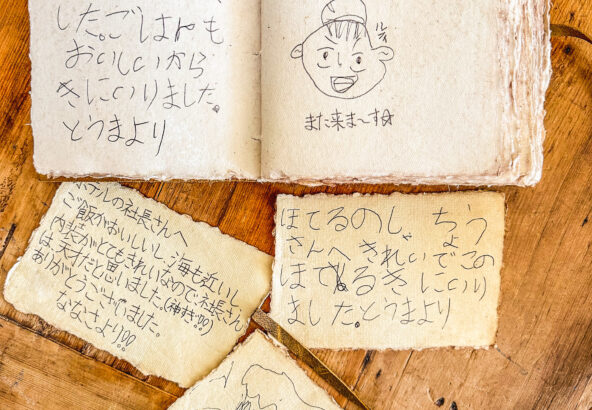 した。ごはんも
おいしいから
きにいりました。
とうまより
ルイ
また来ま〜す☆
ホテルの社長さんへ
ご飯がおいしいし、海も近いし
内装がとてもきれいなので社長さん
は天才だと思いました。(神すぎ!!)
ありがとうございました。
ななさより!!
ほてるのしゃちょう
さんへ きれいでこの
ほてるきにいり
ました。とうまより